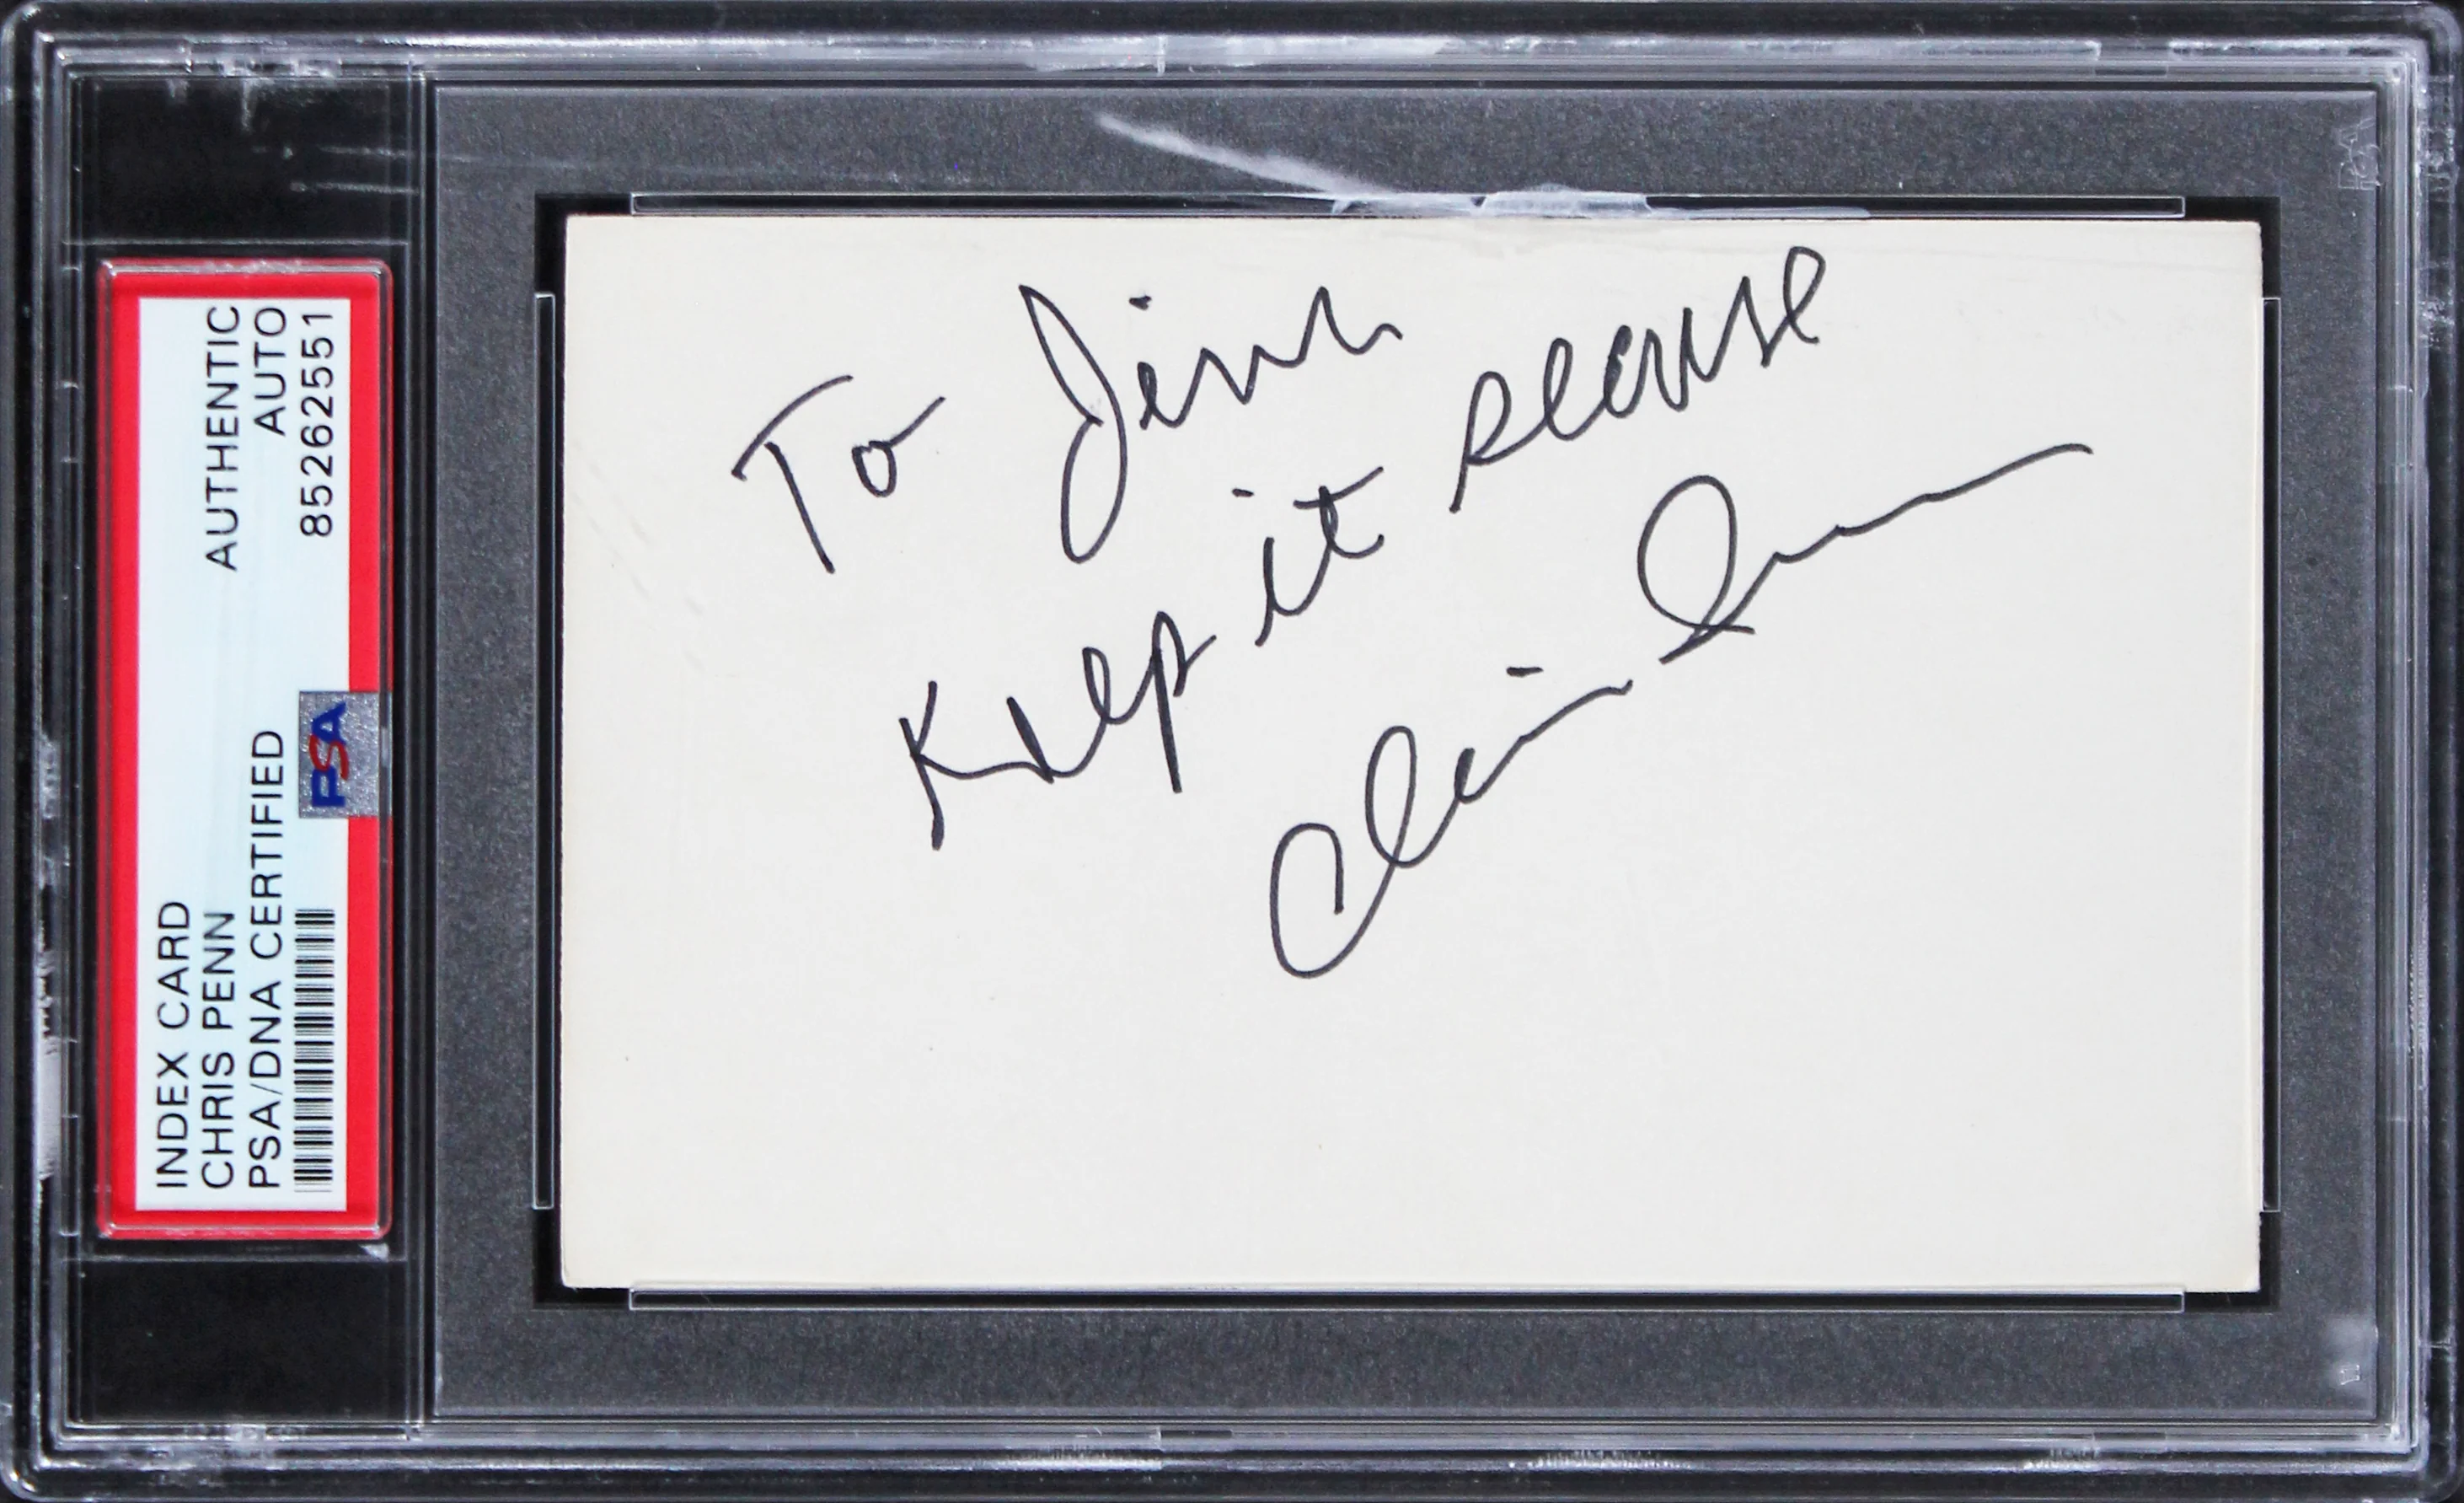 INDEX CARD
CHRIS PENN
PSA/DNA CERTIFIED
AUTHENTIC
AUTO
85262551
PSA
To Jim
Keep it
Chris Penn